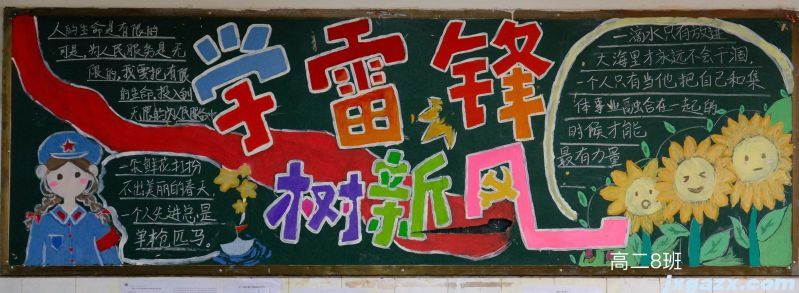 人的生命是有限的
可是,为人民服务是无
限的,我要把有限
的生命,投入到
无限的为人民服务中
学雷锋
树新风
一朵鲜花打扮
不出美丽的春天,
一个人先进总是
单枪匹马。
一滴水只有放进
大海里才永远不会干涸,
一个人只有当他把自己和集
体事业融合在一起的
时候才能
最有力量
高二8班
jxgazx.com